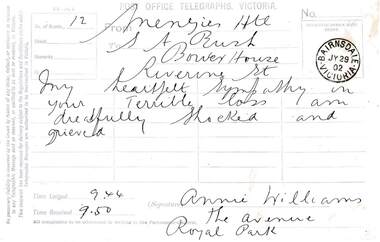 POST OFFICE TELEGRAPHS, VICTORIA.
No. of Words, 12
Menzies Htl
No.
From
To
S A Rush
Bower House
Riverine St
BAIRNSDALE
JY 29
02
VICTORIA
My heartfelt sympathy in
your Terrible loss am
dreadfully shocked and
grieved
Time Lodged 9.44
Time Received 9.50
(Signature)
Annie Williams
the avenue
Royal Park